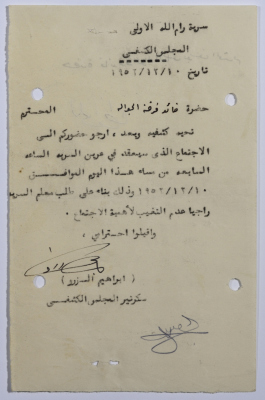 سرية رام الله الاولى
المجلس الكشفي
تاريخ ١٩٥٢/١٢/١٠
حضرة قائد فرقة الجوالة المحترم
تحية كشفية وبعد ، ارجو حضوركم الى
الاجتماع الذي سيعقد في عرين السرية الساعة
السابعة من مساء هذا اليوم الموافق
١٩٥٢/١٢/١٠ وذلك بناء على طلب معلم السرية
راجيا عدم التغيب لأهمية الاجتماع ٠
واقبلوا احترامي ،
( ابراهيم السزرو )
سكرتير المجلس الكشفي